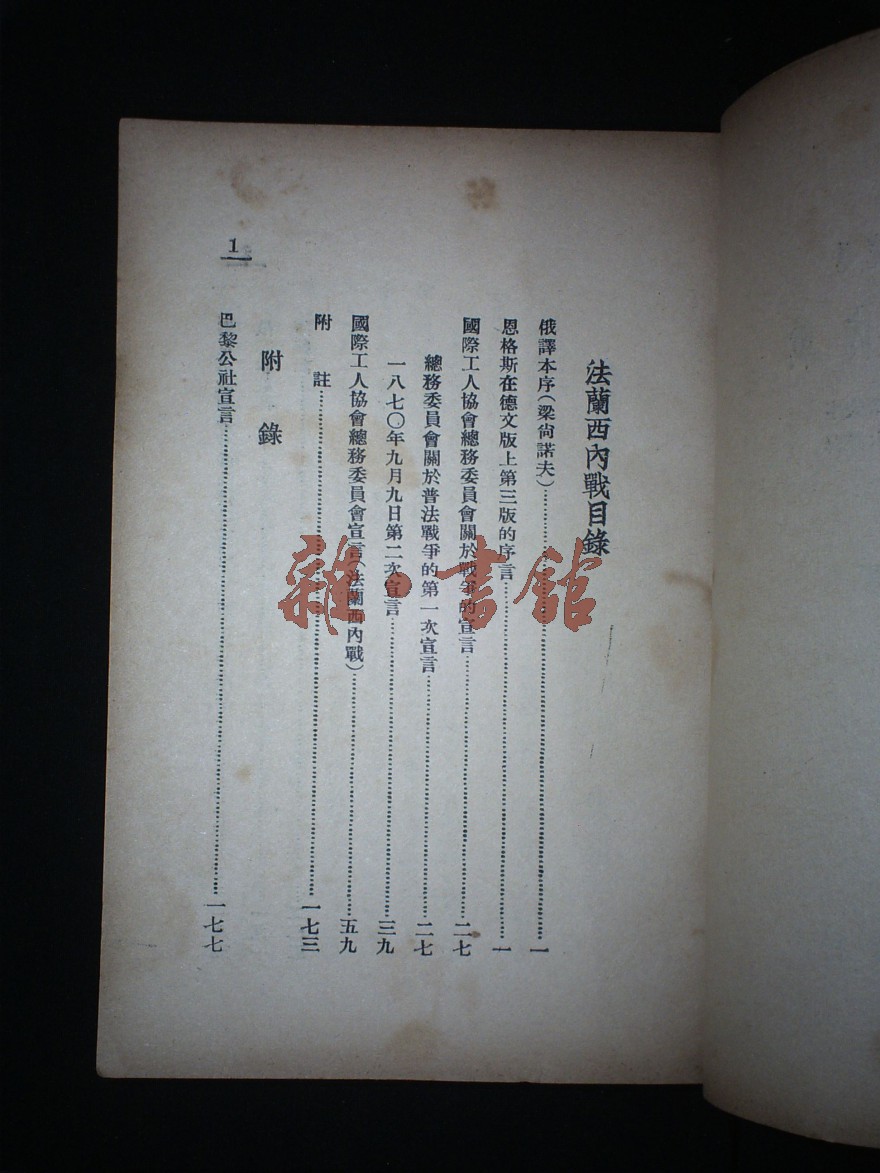 法蘭西內戰目錄
俄譯本序(梁尙諾夫)……一
恩格斯在德文版上第三版的序言……一
國際工人協會總務委員會關於戰爭的宣言……二七
總務委員會關於普法戰爭的第一次宣言……二七
一八七〇年九月九日第二次宣言……三九
國際工人協會總務委員會宣言(法蘭西內戰)……五九
附註……一七三
附錄
巴黎公社宣言……一七七
1
雜·書館